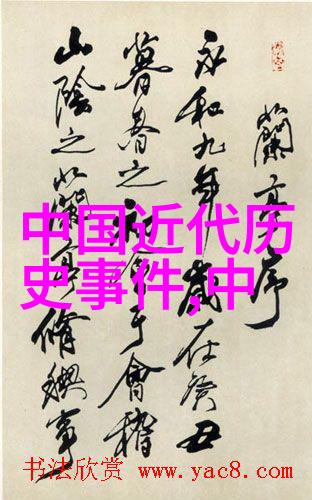 蘭亭序
永和九年歲在癸丑
暮春之初會于會稽
山陰之蘭亭脩禊事
中国近代历
史事件,中
书法欣赏 www.yac8.com